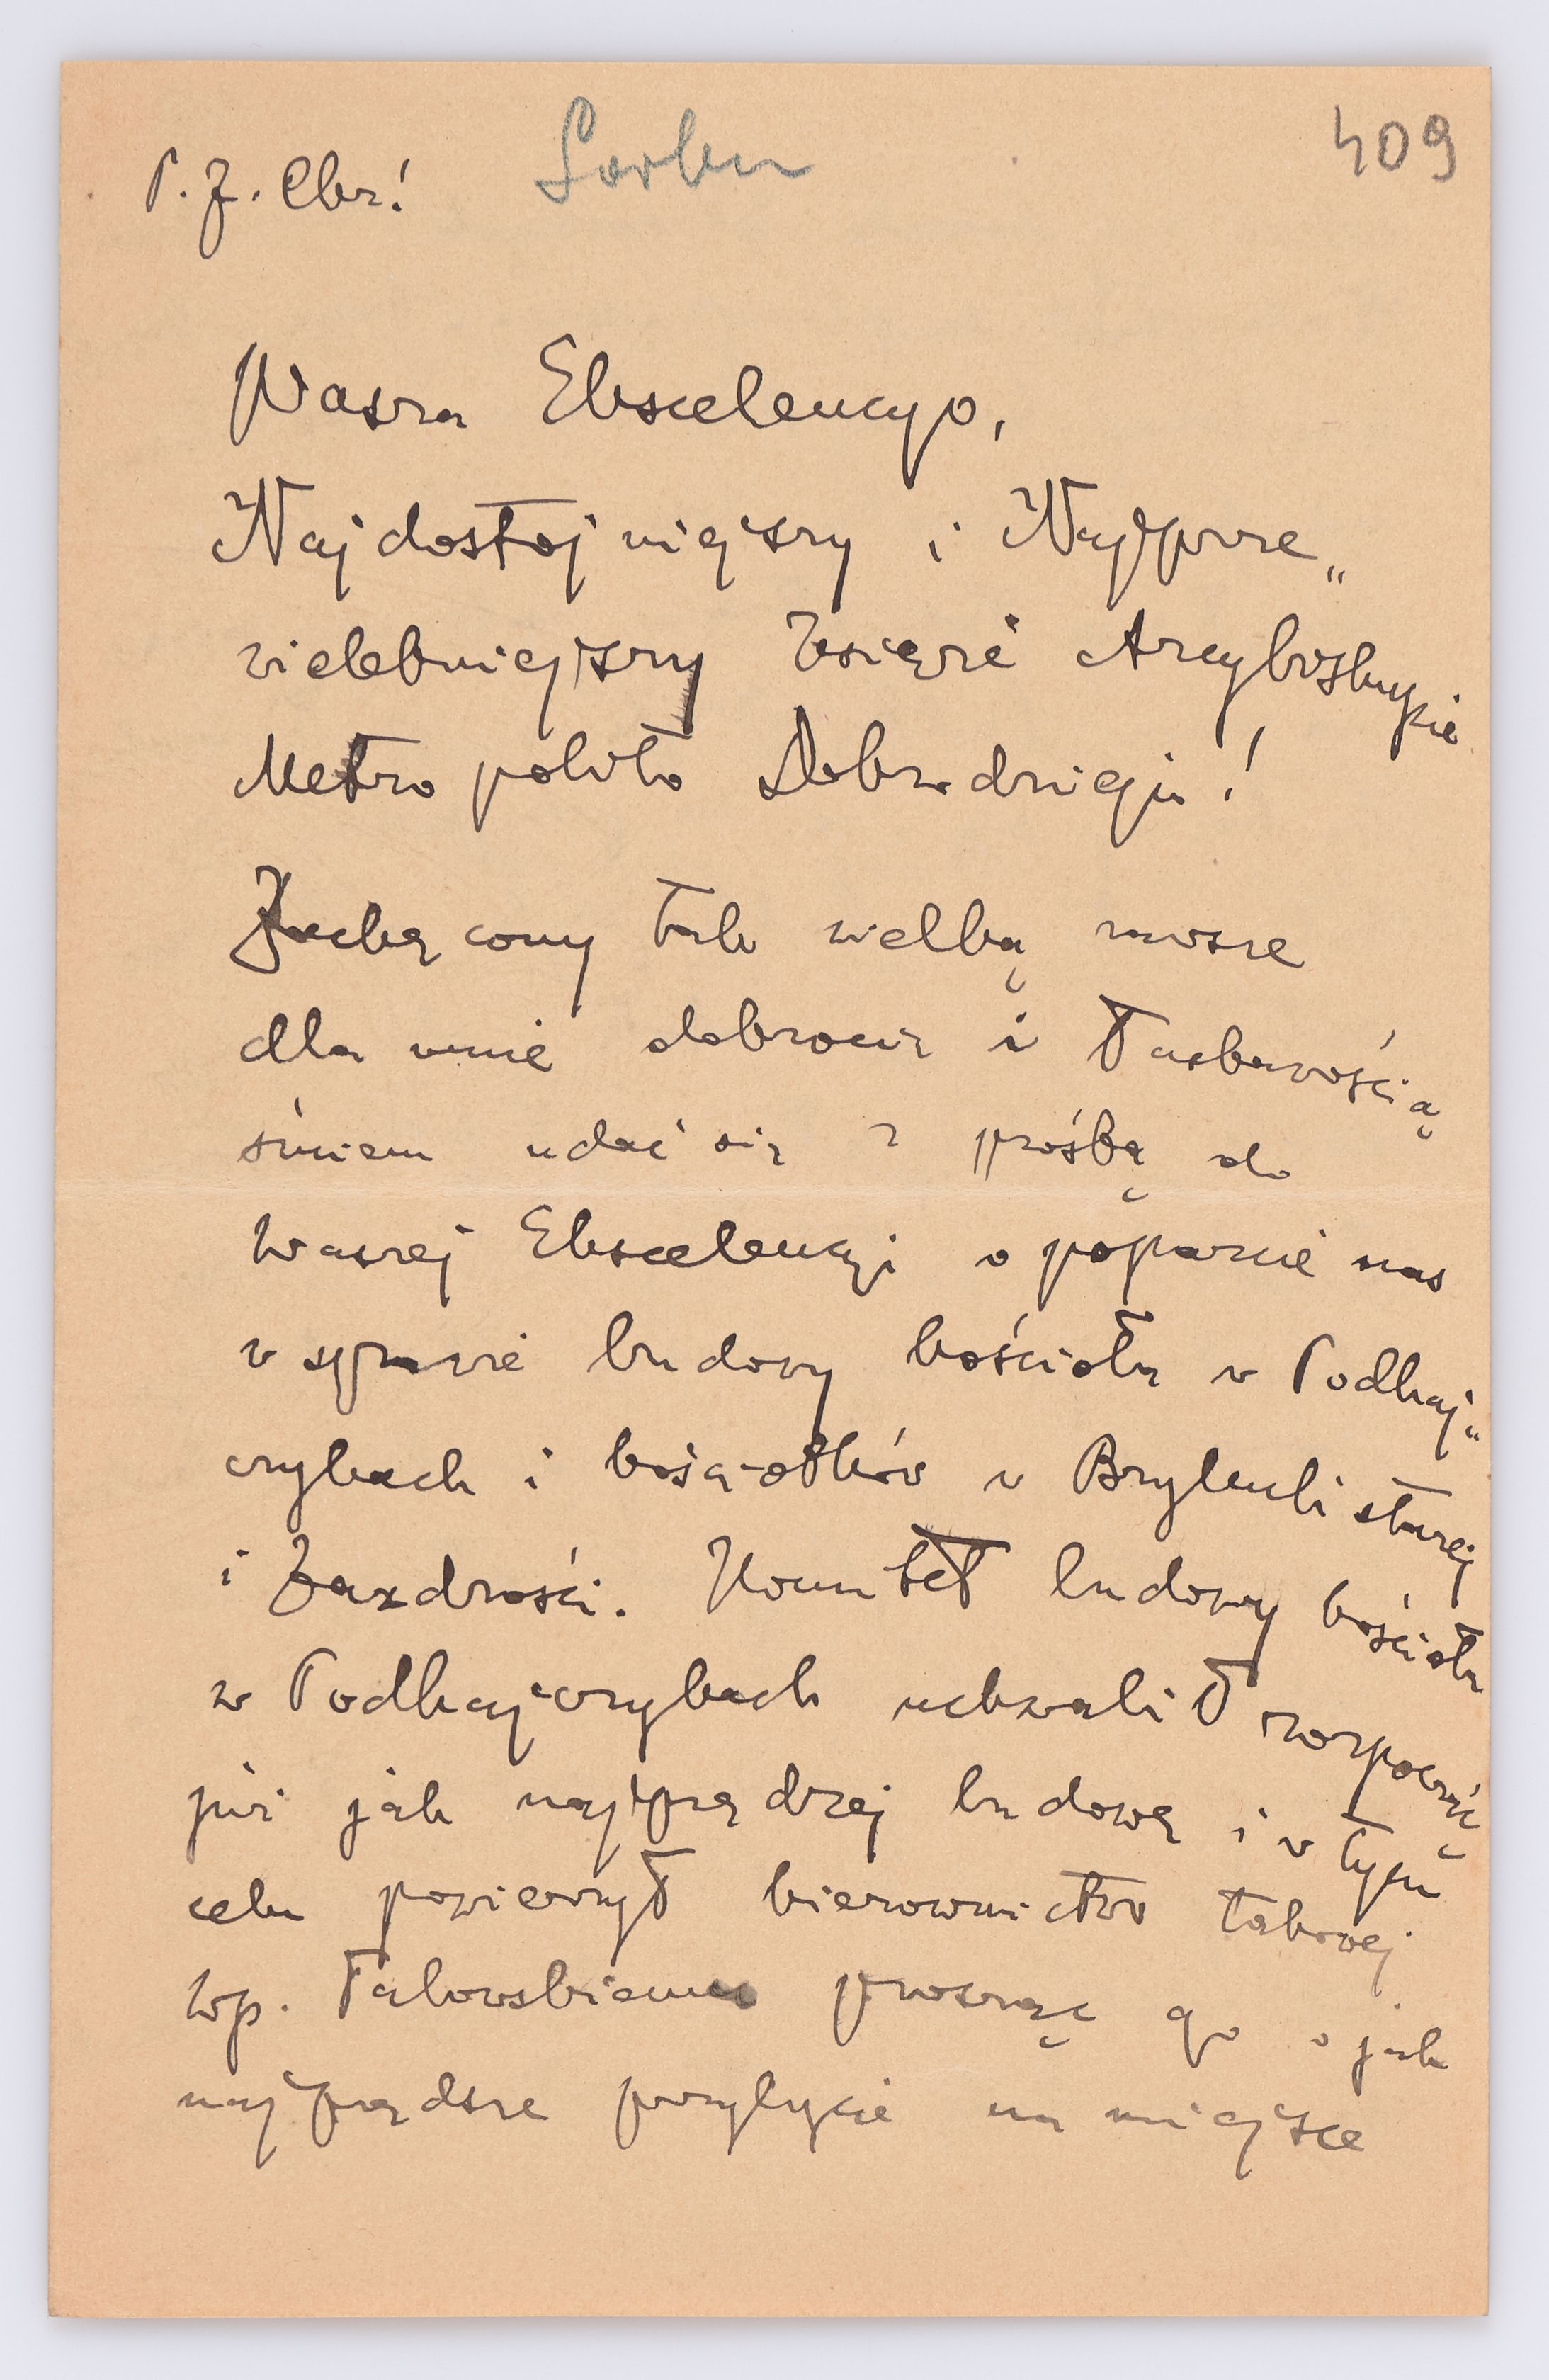 P. J. Chr!
409
Wasza Ekscelencyo,
Najdostojniejszy i Najprze„
wielebniejszy Księże Arcybiskupie
Metropolito Dobrodzieju!
Zachęcony tak wielką zawsze
dla mnie dobrocią i łaskawością
śmiem udać się z prośbą do
Waszej Ekscelencyi o poparcie nas
w sprawie budowy kościoła w Podhaj„
czykach i kościołków w Brykuli starej
i Zazdrości. Komitet budowy kościoła
w Podhajczykach uchwalił rozpocząć
już jak najprędzej budowę i w tym
celu powierzył kierownictwo takowej
Wp. Talowskiemu prosząc go o jak
najprędsze przybycie na miejsce